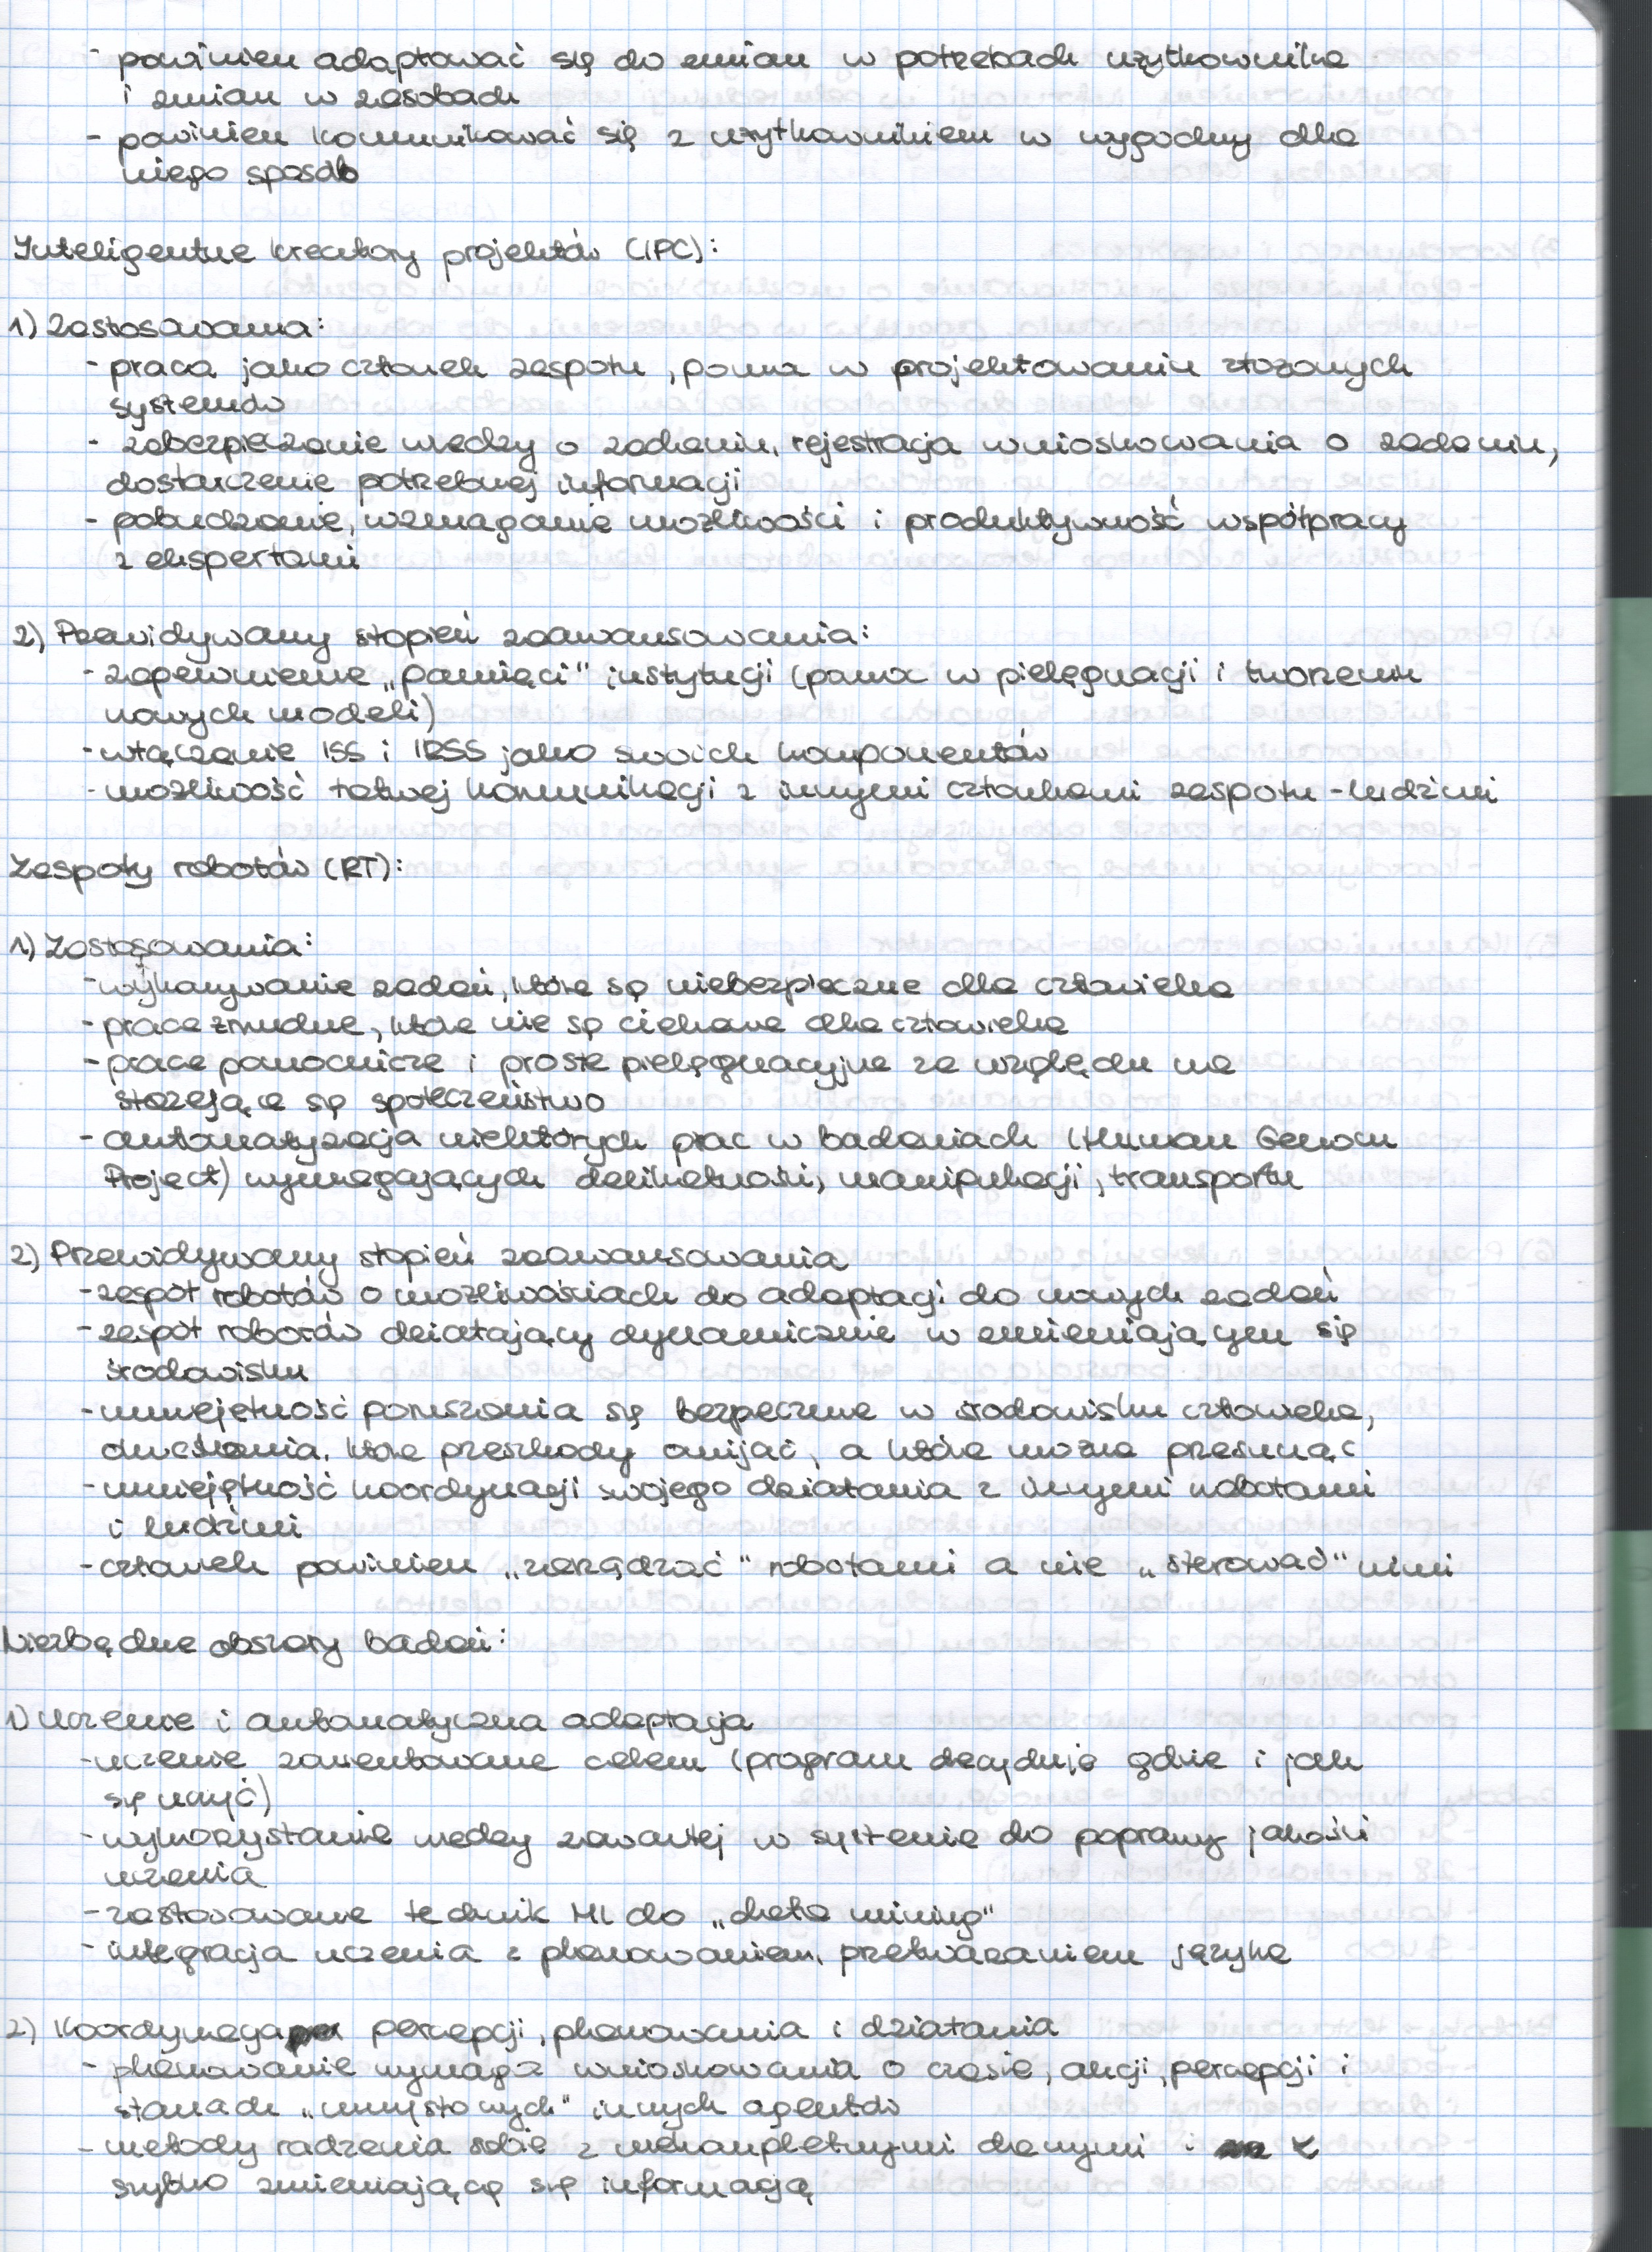 - powinien adaptować się do zmian w potrzebach użytkownika
i zmian w zasobach
- powinien komunikować się z użytkownikiem w wygodny dla
niego sposób
Inteligentne kreatory projektów (IPC):
1) Zastosowania:
- praca jako członek zespołu, pomoc w projektowaniu złożonych
systemów
- zabezpieczenie wiedzy o zadaniu, rejestracja wnioskowania o zadaniu,
dostarczenie potrzebnej informacji
- pobudzanie, wzmaganie możliwości i produktywność współpracy
z ekspertami
2) Przewidywany stopień zaawansowania:
- zapewnienie „pamięci" instytucji (pomoc w pielęgnacji i tworzeniu
nowych modeli)
- włączanie ISS i IRSS jako swoich komponentów
- możliwość łatwej komunikacji z innymi członkami zespołu - ludźmi
Zespoły robotów (RT):
1) Zastosowania:
- wykonywanie zadań, które są niebezpieczne dla człowieka
- prace żmudne, które nie są ciekawe dla człowieka
- prace pomocnicze i proste pielęgnacyjne ze względu na
starzejące się społeczeństwo
- automatyzacja niektórych prac w badaniach (Human Genom
Project) wymagających delikatności, manipulacji, transportu
2) Przewidywany stopień zaawansowania
- zespół robotów o możliwościach do adaptacji do nowych zadań
- zespół robotów działający dynamicznie w zmieniającym się
środowisku
- umiejętność poruszania się bezpieczne w środowisku człowieka,
określania, które przeszkody omijać, a które można przesunąć
- umiejętność koordynacji swojego działania z innymi robotami
i ludźmi
- człowiek powinien „zarządzać" robotami a nie „sterować" nimi
Niezbędne obszary badań:
1) Uczenie i automatyczna adaptacja
- uczenie zorientowane celem (program decyduje gdzie i jak
się uczyć)
- wykorzystanie wiedzy zawartej w systemie do poprawy jakości
uczenia
- zastosowanie technik ML do „data mining"
- integracja uczenia z planowaniem, przetwarzaniem języka
2) Koordynacja percepcji, planowania i działania
- planowanie wymaga wnioskowania o czasie, akcji, percepcji i
stanach „umysłowych" innych agentów
- metody radzenia sobie z niekompletnymi danymi i z
szybko zmieniającą się informacją